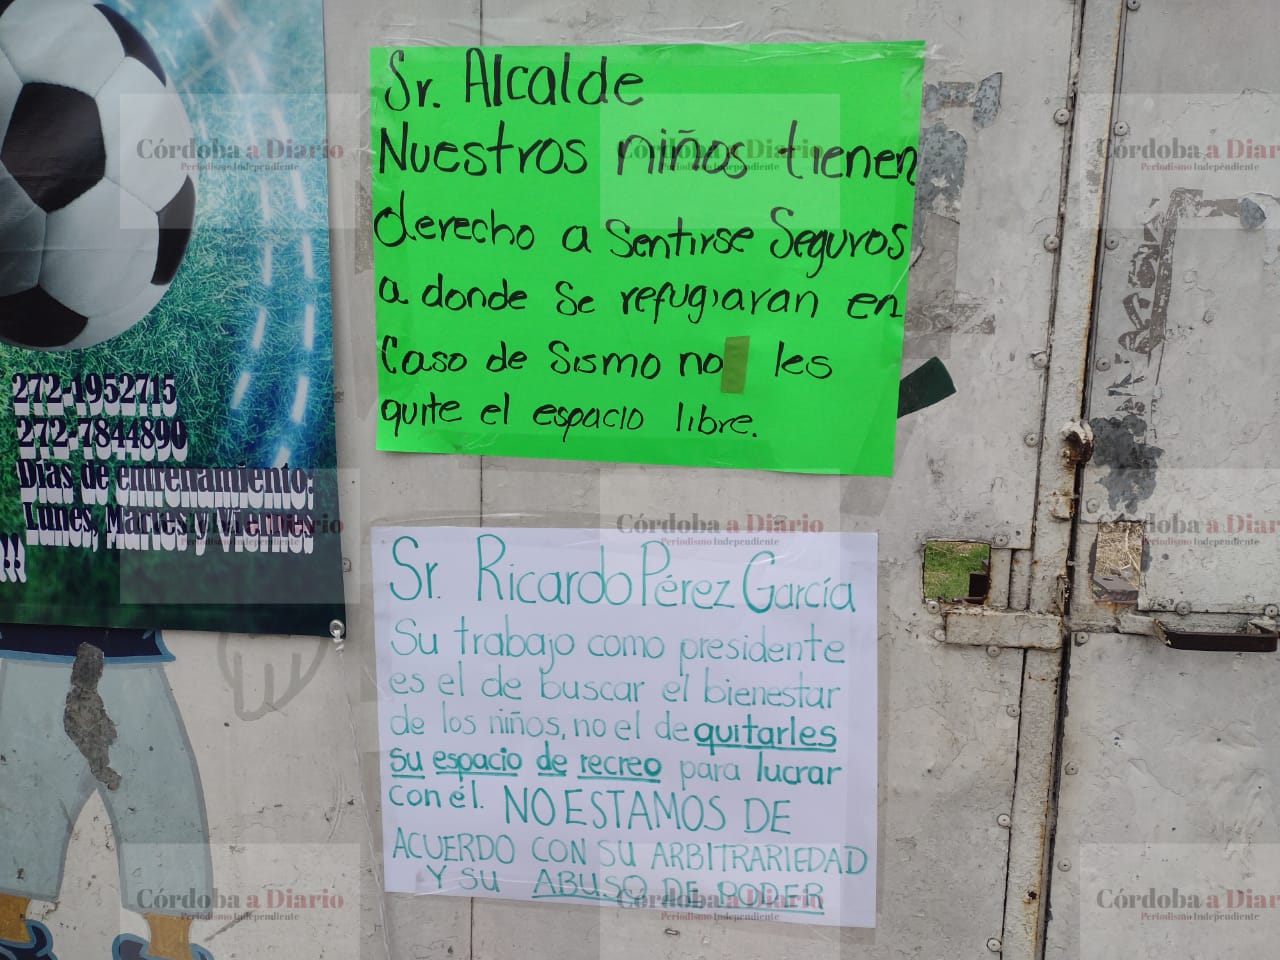 Sr. Alcalde
Nuestros niños tienen
derecho a Sentirse Seguros
a donde Se refugiaran en
Caso de Sismo no les
quite el espacio libre.
Sr. Ricardo Pérez García
Su trabajo como presidente
es el de buscar el bienestar
de los niños, no el de quitarles
su espacio de recreo para lucrar
con él. NO ESTAMOS DE
ACUERDO CON SU ARBITRARIEDAD
Y SU ABUSO DE PODER
272-1952715
272-7844890
Días de entrenamiento:
Lunes, Martes y Viernes
!!!
Córdoba a Diario
Periodismo Independiente
Córdoba a Diario
Periodismo Independiente
Córdoba a Diar
Periodismo Independiente
Córdoba a Diario
Periodismo Independiente
Córdoba a Diar
Periodismo Independiente
Córdoba a Diario
Periodismo Independiente
Córdoba a Diario
Periodismo Independiente
Córdoba a Diar
Periodismo Independiente